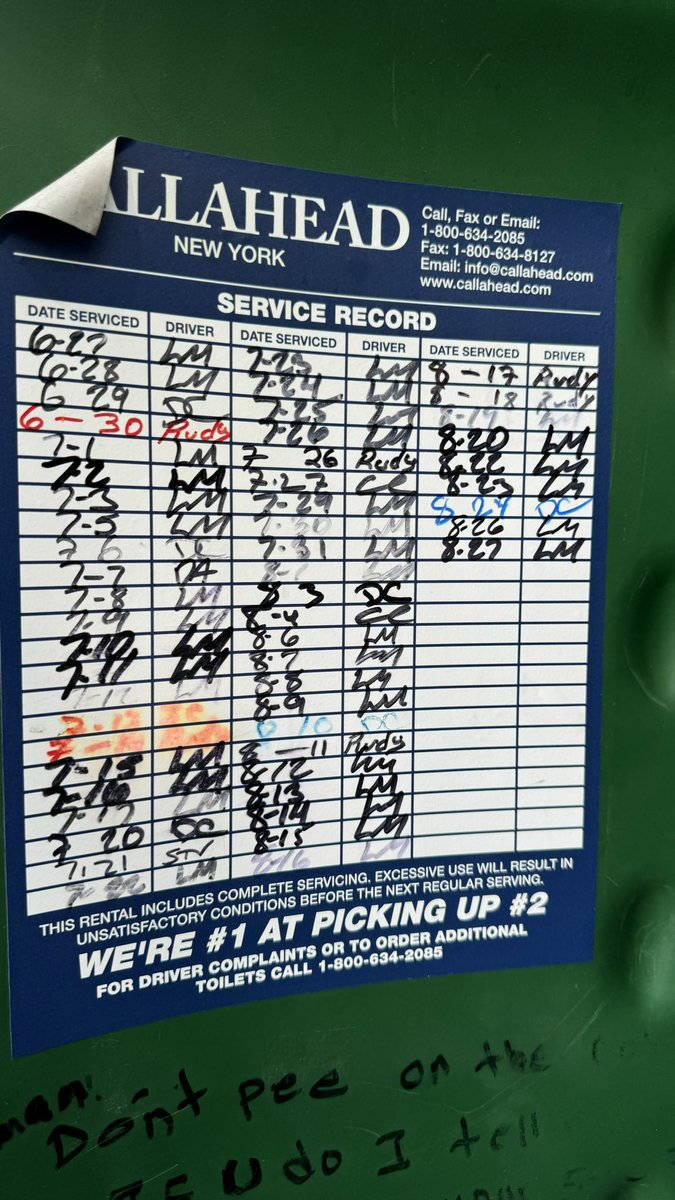 ALLAHEAD
NEW YORK
Call, Fax or Email:
1-800-634-2085
Fax: 1-800-634-8127
Email: info@callahead.com
www.callahead.com
SERVICE RECORD
DATE SERVICED DRIVER DATE SERVICED DRIVER DATE SERVICED DRIVER
6-27 LM 7-23 LM 8-17 Rudy
6-28 LM 7-24 LM 8-18 Rudy
6 29 DC 7-25 LM 8-19 LM
6-30 Rudy 7-26 LM 8-20 LM
7-1 LM 7 26 Rudy 8-22 LM
7-2 LM 7-27 CC 8-23 LM
7-3 LM 7-29 LM 8 24 DC
7-5 LM 7-30 LM 8-26 LM
7 6 DC 7-31 LM 8-27 LM
7-7 DA 8-1 LM
7-8 LM 8 3 DC
7-9 LM 8-4 CC
7-10 LM 8-6 LM
7-11 LM 8-7 LM
7-12 LM 8-8 LM
8-9 LM
8 10 DC
8-11 Rudy
7-15 LM 8-12 LM
7-16 LM 8-13 LM
7-17 LM 8-14 LM
7 20 DC 8-15 LM
7-21 STV 8-16 LM
7-22 LM
THIS RENTAL INCLUDES COMPLETE SERVICING. EXCESSIVE USE WILL RESULT IN
UNSATISFACTORY CONDITIONS BEFORE THE NEXT REGULAR SERVING.
WE'RE #1 AT PICKING UP #2
FOR DRIVER COMPLAINTS OR TO ORDER ADDITIONAL
TOILETS CALL 1-800-634-2085
man!
Don't pee on the
If U do I tell